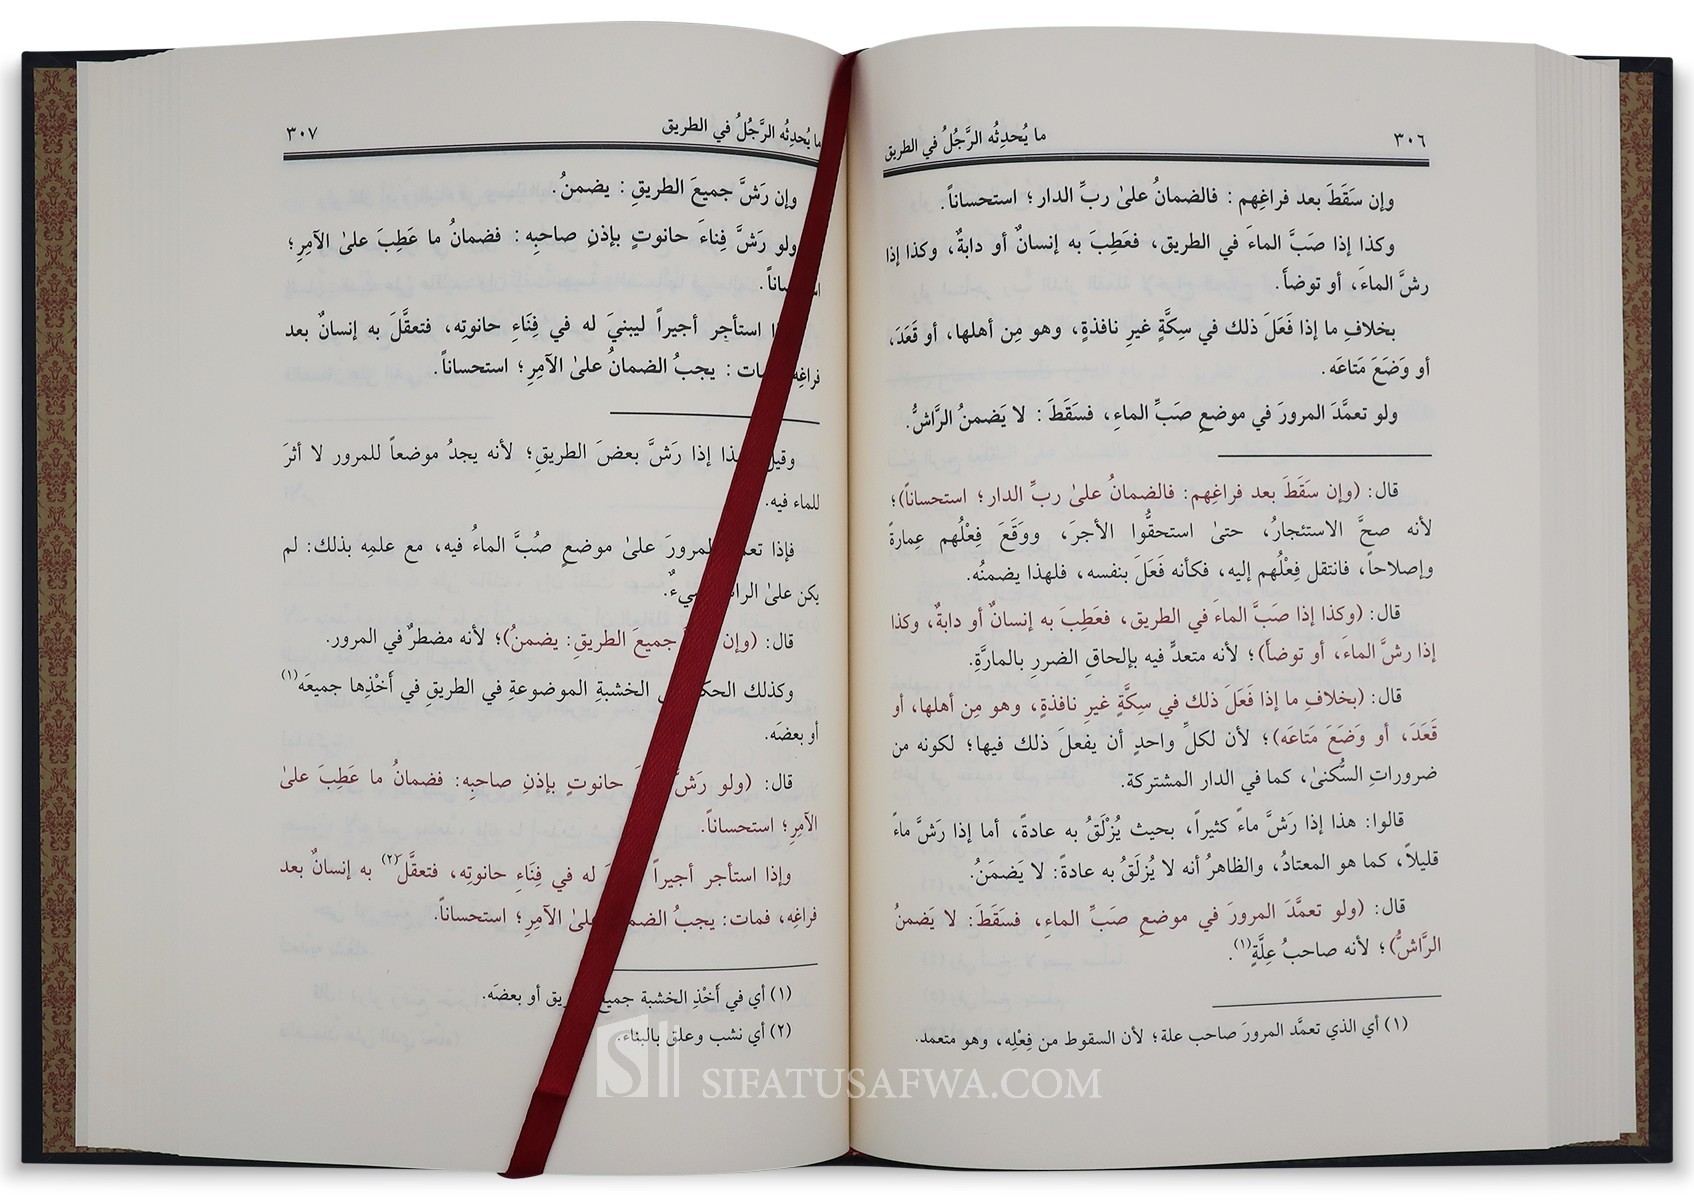 ما يُحدِثُه الرَّجُلُ في الطريق ٣٠٦
وإن سَقَطَ بعد فراغِهم : فالضمانُ علىٰ ربِّ الدار ؛ استحساناً.
وكذا إذا صَبَّ الماءَ في الطريق، فعَطِبَ به إنسانٌ أو دابةٌ، وكذا إذا
رشَّ الماءَ، أو توضأ.
بخلافِ ما إذا فَعَلَ ذلك في سِكَّةٍ غيرِ نافذةٍ، وهو مِن أهلها، أو قَعَدَ،
أو وَضَعَ مَتَاعَه.
ولو تعمَّدَ المرورَ في موضعِ صَبِّ الماءِ، فسَقَطَ : لا يَضمنُ الرَّاشُّ.
قال: (وإن سَقَطَ بعد فراغِهم: فالضمانُ علىٰ ربِّ الدار؛ استحساناً)؛
لأنه صحَّ الاستئجارُ، حتىٰ استحقُّوا الأجرَ، ووَقَعَ فِعْلُهم عِمارةً
وإصلاحاً، فانتقل فِعْلُهم إليه، فكأنه فَعَلَ بنفسه، فلهذا يضمنُه.
قال: (وكذا إذا صَبَّ الماءَ في الطريق، فعَطِبَ به إنسانٌ أو دابةٌ، وكذا
إذا رشَّ الماءَ، أو توضأ)؛ لأنه متعدٍّ فيه بإلحاقِ الضررِ بالمارَّةِ.
قال: (بخلافِ ما إذا فَعَلَ ذلك في سِكَّةٍ غيرِ نافذةٍ، وهو مِن أهلها، أو
قَعَدَ، أو وَضَعَ مَتَاعَه)؛ لأن لكلِّ واحدٍ أن يفعلَ ذلك فيها؛ لكونه من
ضروراتِ السُّكنىٰ، كما في الدار المشتركة.
قالوا: هذا إذا رَشَّ ماءً كثيراً، بحيث يُزْلَقُ به عادةً، أما إذا رَشَّ ماءً
قليلاً، كما هو المعتادُ، والظاهرُ أنه لا يُزلَقُ به عادةً: لا يَضمَنُ.
قال: (ولو تعمَّدَ المرورَ في موضعِ صَبِّ الماءِ، فسَقَطَ: لا يَضمنُ
الرَّاشُّ)؛ لأنه صاحبُ عِلَّةٍ(١).
(١) أي الذي تعمَّد المرورَ صاحب علة؛ لأن السقوط من فِعْلِه، وهو متعمد.
ما يُحدِثُه الرَّجُلُ في الطريق ٣٠٧
وإن رَشَّ جميعَ الطريقِ : يضمنُ.
ولو رَشَّ فِناءَ حانوتٍ بإذنِ صاحبِه : فضمانُ ما عَطِبَ علىٰ الآمِرِ؛
استأجر أجيراً ليبنيَ له في فِنَاءِ حانوتِه، فتعقَّلَ به إنسانٌ بعد
يجبُ الضمانُ علىٰ الآمِرِ؛ استحساناً.
إذا رَشَّ بعضَ الطريقِ؛ لأنه يجدُ موضعاً للمرور لا أثرَ
للماء فيه.
فإذا المرورَ علىٰ موضعٍ صُبَّ الماءُ فيه، مع علمِه بذلك: لم
يكن علىٰ
قال: (وإن جميعَ الطريقِ: يضمنُ)؛ لأنه مضطرٌ في المرور.
وكذلك الخشبةِ الموضوعةِ في الطريقِ في أَخْذِها جميعَه(١)
أو بعضَه.
قال: (ولو رَشَّ حانوتٍ بإذنِ صاحبِه: فضمانُ ما عَطِبَ علىٰ
الآمِرِ؛ استحساناً.
وإذا استأجر أجيراً له في فِنَاءِ حانوتِه، فتعقَّلَ(٢) به إنسانٌ بعد
فراغِه، فمات: يجبُ علىٰ الآمِرِ؛ استحساناً.
(١) أي في أَخْذِ الخشبة أو بعضَه.
(٢) أي نشب وعلق بالبناء.
SIFATUSAFWA.COM